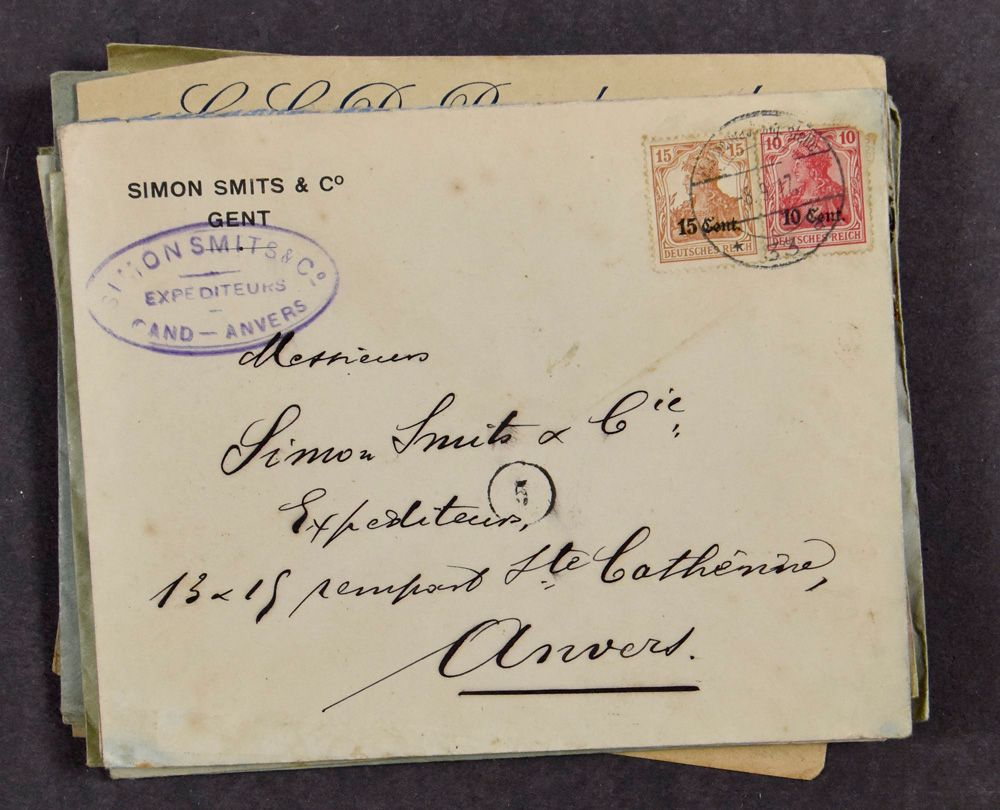 SIMON SMITS & Cº
GENT
SIMON SMITS & Cº
EXPEDITEURS
GAND — ANVERS
15 15
15 Cent.
DEUTSCHES REICH
10 10
10 Cent.
DEUTSCHES REICH
33
Messieurs
Simon Smits & Cie
5
Expediteurs,
13 & 15 rempart Ste Cathérine,
Anvers.